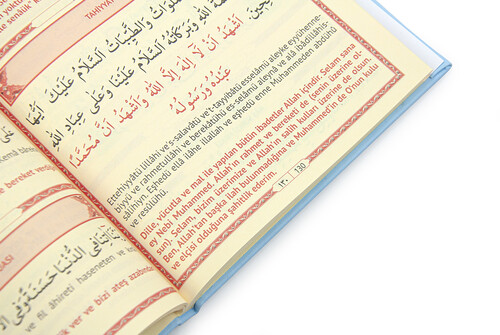 TAHİYYA
وَالطَّيِّبَاتُ اَلسَّلَامُ عَلَيْكَ اَيُّهَا
اللّٰهِ وَبَرَكَاتُهُ اَلسَّلَامُ عَلَيْنَا وَعَلٰى عِبَادِ اللّٰهِ
اَشْهَدُ اَنْ لَا اِلٰهَ اِلَّا اللّٰهُ وَاَشْهَدُ اَنَّ مُحَمَّدًا
عَبْدُهُ وَرَسُولُهُ
Ettehiyyâtü lillâhi ve's-salavâtü ve't-tayyibâtü esselâmü aleyke eyyühenne-
biyyü ve rahmetullâhi ve berekâtühü es-selâmü aleynâ ve alâ ibâdillâhis-
sâlihiyn. Eşhedü ellâ ilâhe illallah ve eşhedü enne Muhammeden abdühü
ve resûlühü.
Dille, vücutla ve mal ile yapılan bütün ibadetler Allah içindir. Selam sana
ey Nebi Muhammed. Allah'ın rahmet ve bereketi de senin üzerine ol-
sun). Selam, bizim üzerimize ve Allah'ın salih kulları üzerine de olsun.
Ben, Allah'tan başka ilah bulunmadığına ve Muhammed'in de O'nun kulu
ve elçisi olduğuna şahitlik ederim.
١٣٠ 130
ve bereket
ASI
الدُّنْيَا حَسَنَةً وَفِى
ve fil âhireti haseneten ve
ik ver ve bizi ateş azabında